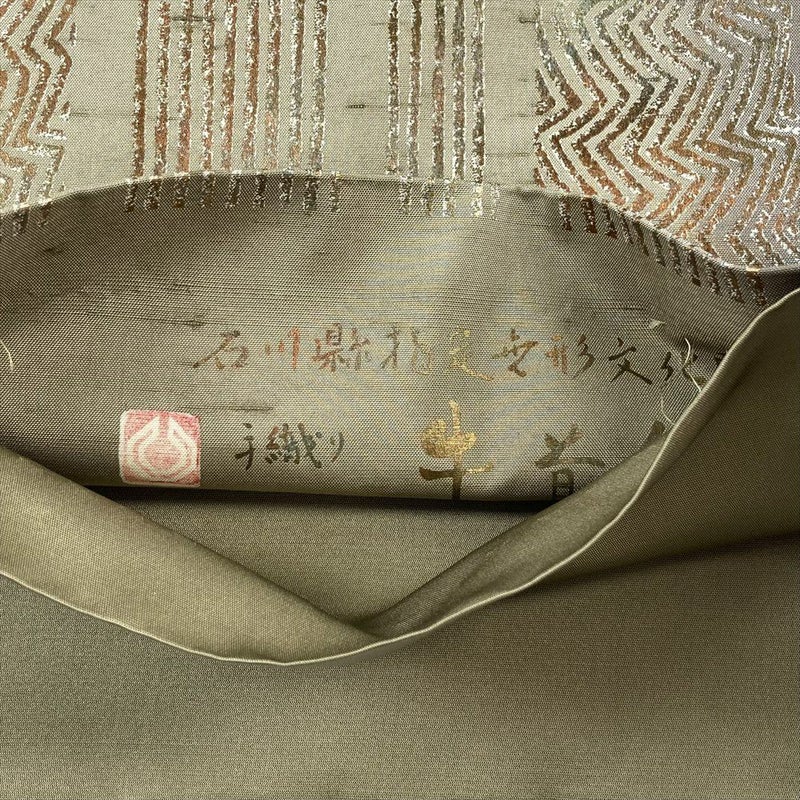 石川縣指定無形文化
手織り 牛首